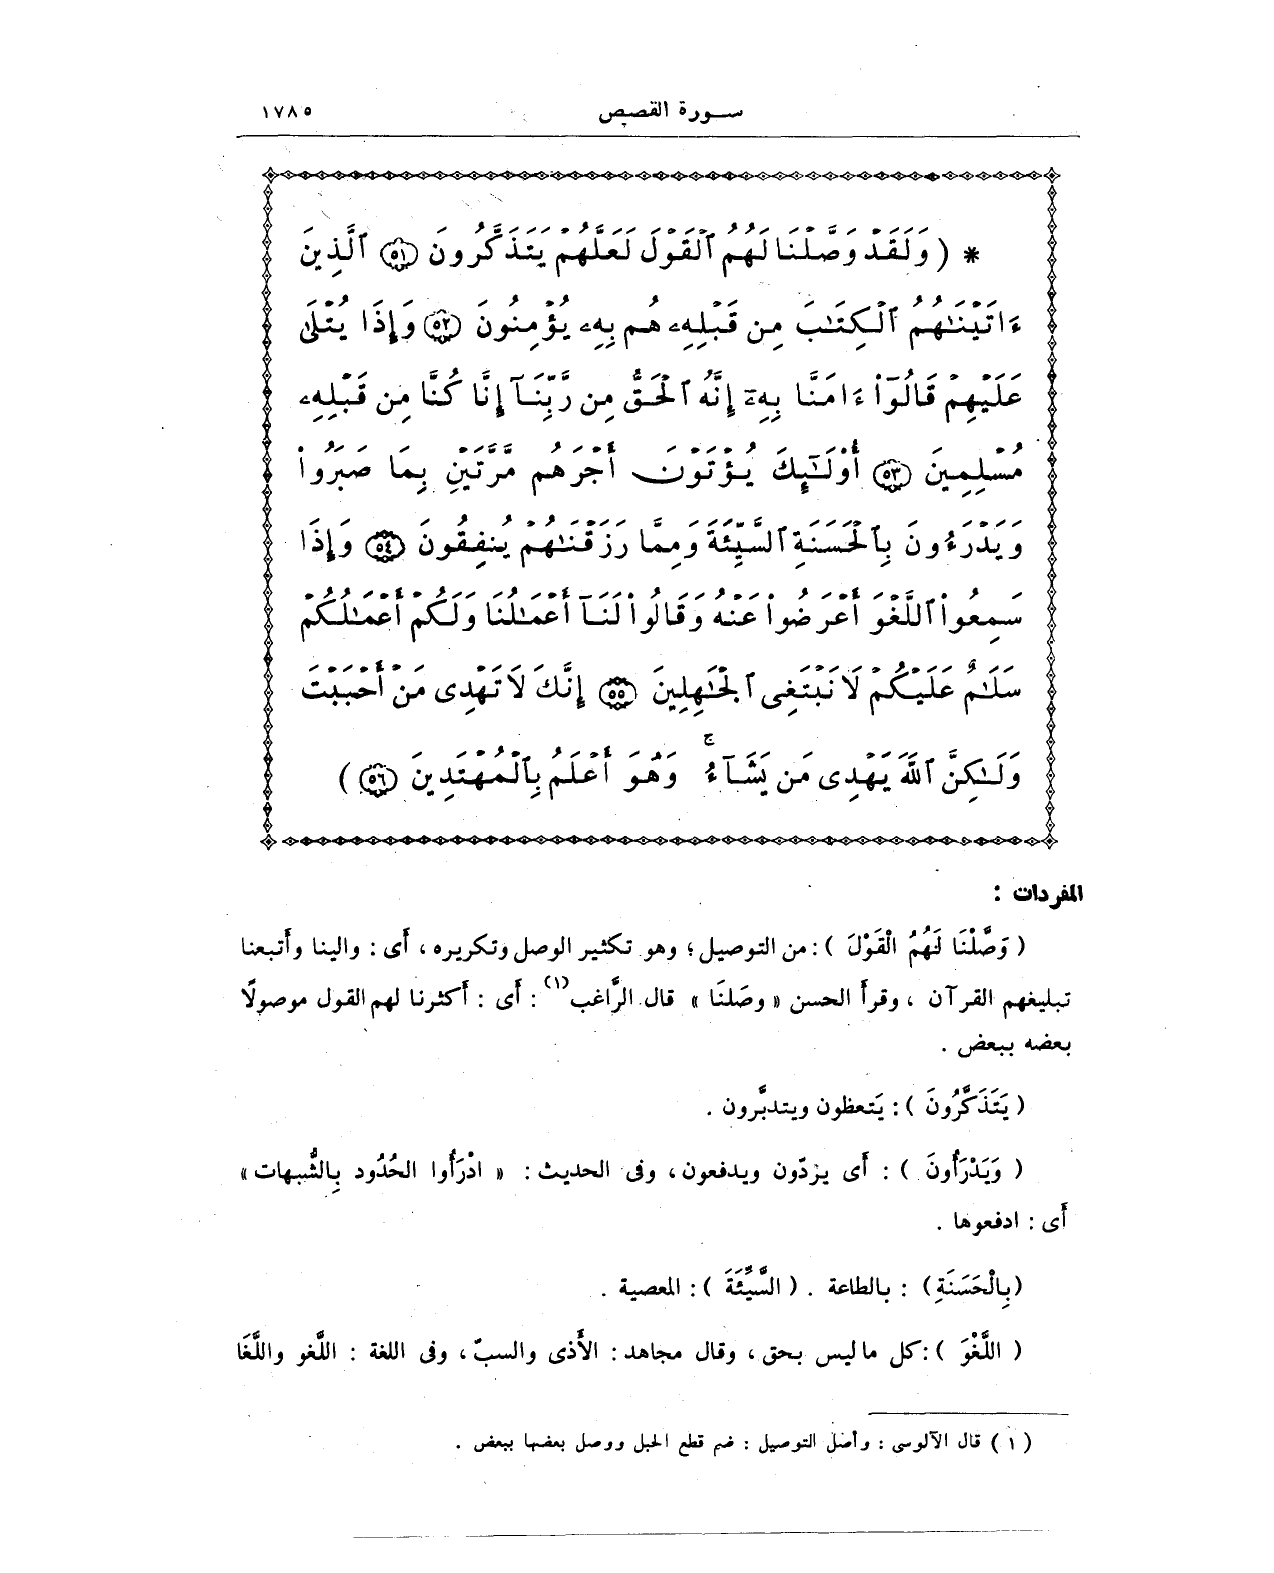 سورة القصص ١٧٨٥
* ( وَلَقَدْ وَصَّلْنَا لَهُمُ ٱلْقَوْلَ لَعَلَّهُمْ يَتَذَكَّرُونَ ٥١ ٱلَّذِينَ
ءَاتَيْنَٰهُمُ ٱلْكِتَٰبَ مِن قَبْلِهِۦ هُم بِهِۦ يُؤْمِنُونَ ٥٢ وَإِذَا يُتْلَىٰ
عَلَيْهِمْ قَالُوٓا۟ ءَامَنَّا بِهِۦٓ إِنَّهُ ٱلْحَقُّ مِن رَّبِّنَآ إِنَّا كُنَّا مِن قَبْلِهِۦ
مُسْلِمِينَ ٥٣ أُو۟لَٰٓئِكَ يُؤْتَوْنَ أَجْرَهُم مَّرَّتَيْنِ بِمَا صَبَرُوا۟
وَيَدْرَءُونَ بِٱلْحَسَنَةِ ٱلسَّيِّئَةَ وَمِمَّا رَزَقْنَٰهُمْ يُنفِقُونَ ٥٤ وَإِذَا
سَمِعُوا۟ ٱللَّغْوَ أَعْرَضُوا۟ عَنْهُ وَقَالُوا۟ لَنَآ أَعْمَٰلُنَا وَلَكُمْ أَعْمَٰلُكُمْ
سَلَٰمٌ عَلَيْكُمْ لَا نَبْتَغِى ٱلْجَٰهِلِينَ ٥٥ إِنَّكَ لَا تَهْدِى مَنْ أَحْبَبْتَ
وَلَٰكِنَّ ٱللَّهَ يَهْدِى مَن يَشَآءُ ۚ وَهُوَ أَعْلَمُ بِٱلْمُهْتَدِينَ ٥٦ )
المفردات :
( وَصَّلْنَا لَهُمُ الْقَوْلَ ) : من التوصيل؛ وهو تكثير الوصل وتكريره ، أَى : والينا وأَتبعنا
تبليغهم القرآن ، وقرأَ الحسن « وصَلنَا » قال الرَّاغب(١) : أَى : أَكثرنا لهم القول موصولًا
بعضه ببعض .
( يَتَذَكَّرُونَ ) : يَتعظون ويتدبَّرون .
( وَيَدْرَأُونَ ) : أَى يردّون ويدفعون ، وفى الحديث : « ادْرَأُوا الحُدُود بِالشُّبهات »
أَى : ادفعوها .
(بِالْحَسَنَةِ) : بالطاعة . ( السَّيِّئَةَ ) : المعصية .
( اللَّغْوَ ) : كل ما ليس بحق ، وقال مجاهد : الأَذى والسبّ ، وفى اللغة : اللَّغو واللَّغَا
( ١ ) قال الآلوسى : وأصل التوصيل : ضم قطع الحبل ووصل بعضها ببعض .